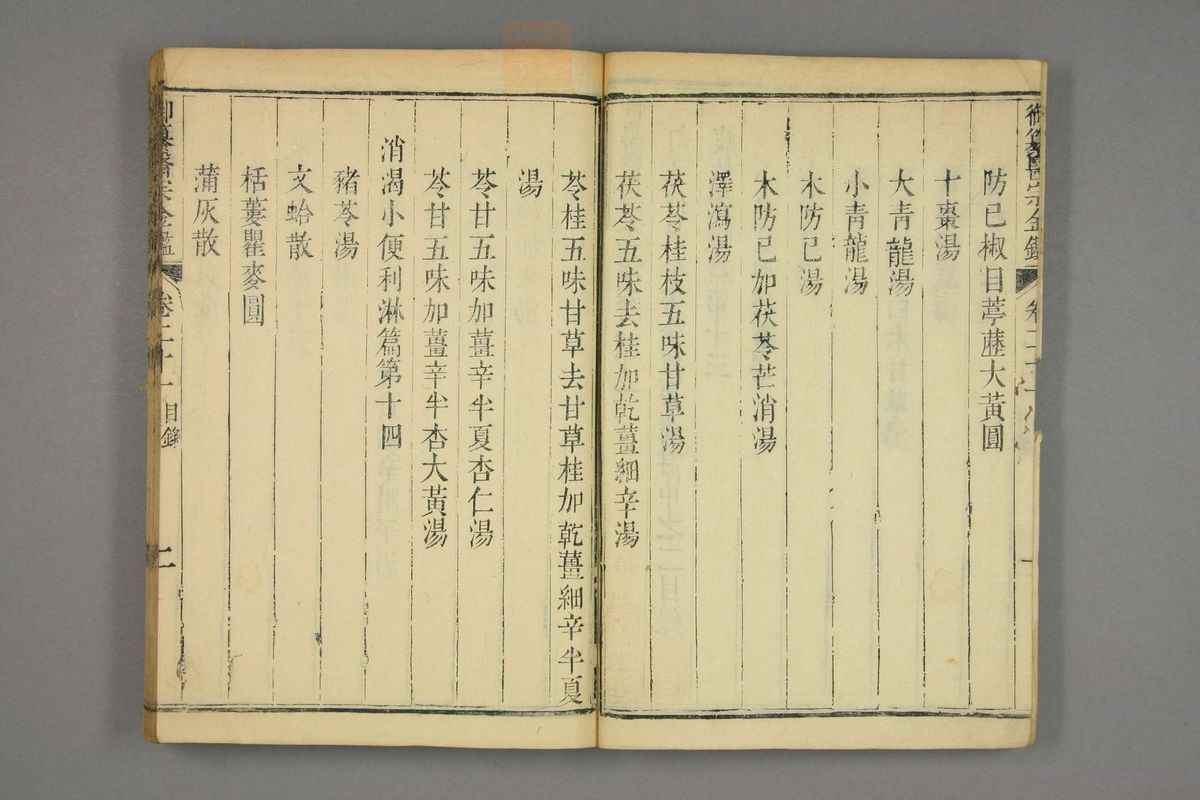 防已椒目葶藶大黃圓
十棗湯
大青龍湯
小青龍湯
木防已湯
木防已加茯苓芒消湯
澤瀉湯
茯苓桂枝五味甘草湯
茯苓五味去桂加乾薑細辛湯
苓桂五味甘草去甘草桂加乾薑細辛半夏
湯
苓甘五味加薑辛半夏杏仁湯
苓甘五味加薑辛半杏大黃湯
消渴小便利淋篇第十四
豬苓湯
文蛤散
栝蔞瞿麥圓
蒲灰散
御纂醫宗金鑑 卷二十一 目錄 二